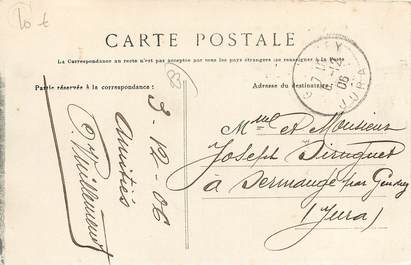 10 €
CARTE POSTALE
La Correspondance au recto n'est pas acceptée par tous les pays étrangers (se renseigner à la poste)
83
Partie réservée à la correspondance :
Adresse du destinataire
EY
JURA
12
06
3-12-06
Amitiés
Vuillemenot
Mme et Monsieur
Joseph
à Sermange par Gendrey
(Jura)